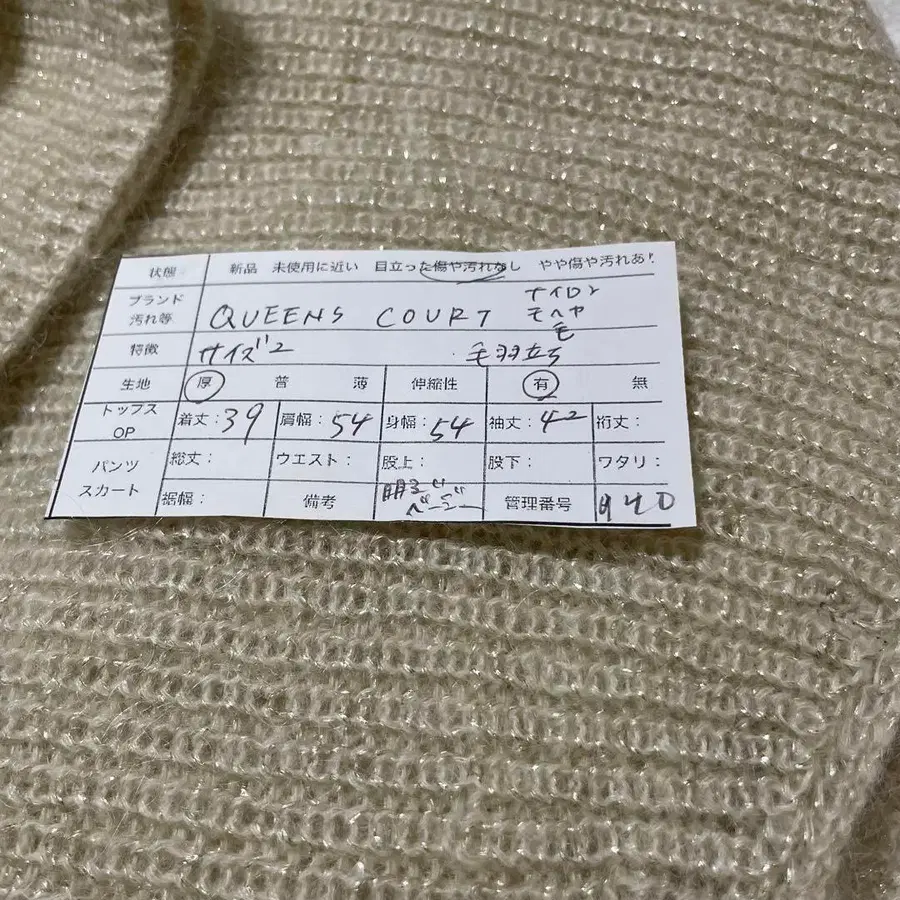 状態 新品 未使用に近い 目立った傷や汚れなし やや傷や汚れあり
ブランド 汚れ等 QUEENS COURT ナイロン モヘヤ 毛
特徴 サイズ2 毛羽立ち
生地 厚 普 薄 伸縮性 有 無
トップス OP 着丈：39 肩幅：54 身幅：54 袖丈：42 裄丈：
パンツ スカート 総丈： ウエスト： 股上： 股下： ワタリ：
裾幅： 備考 明るい ベージー 管理番号 940